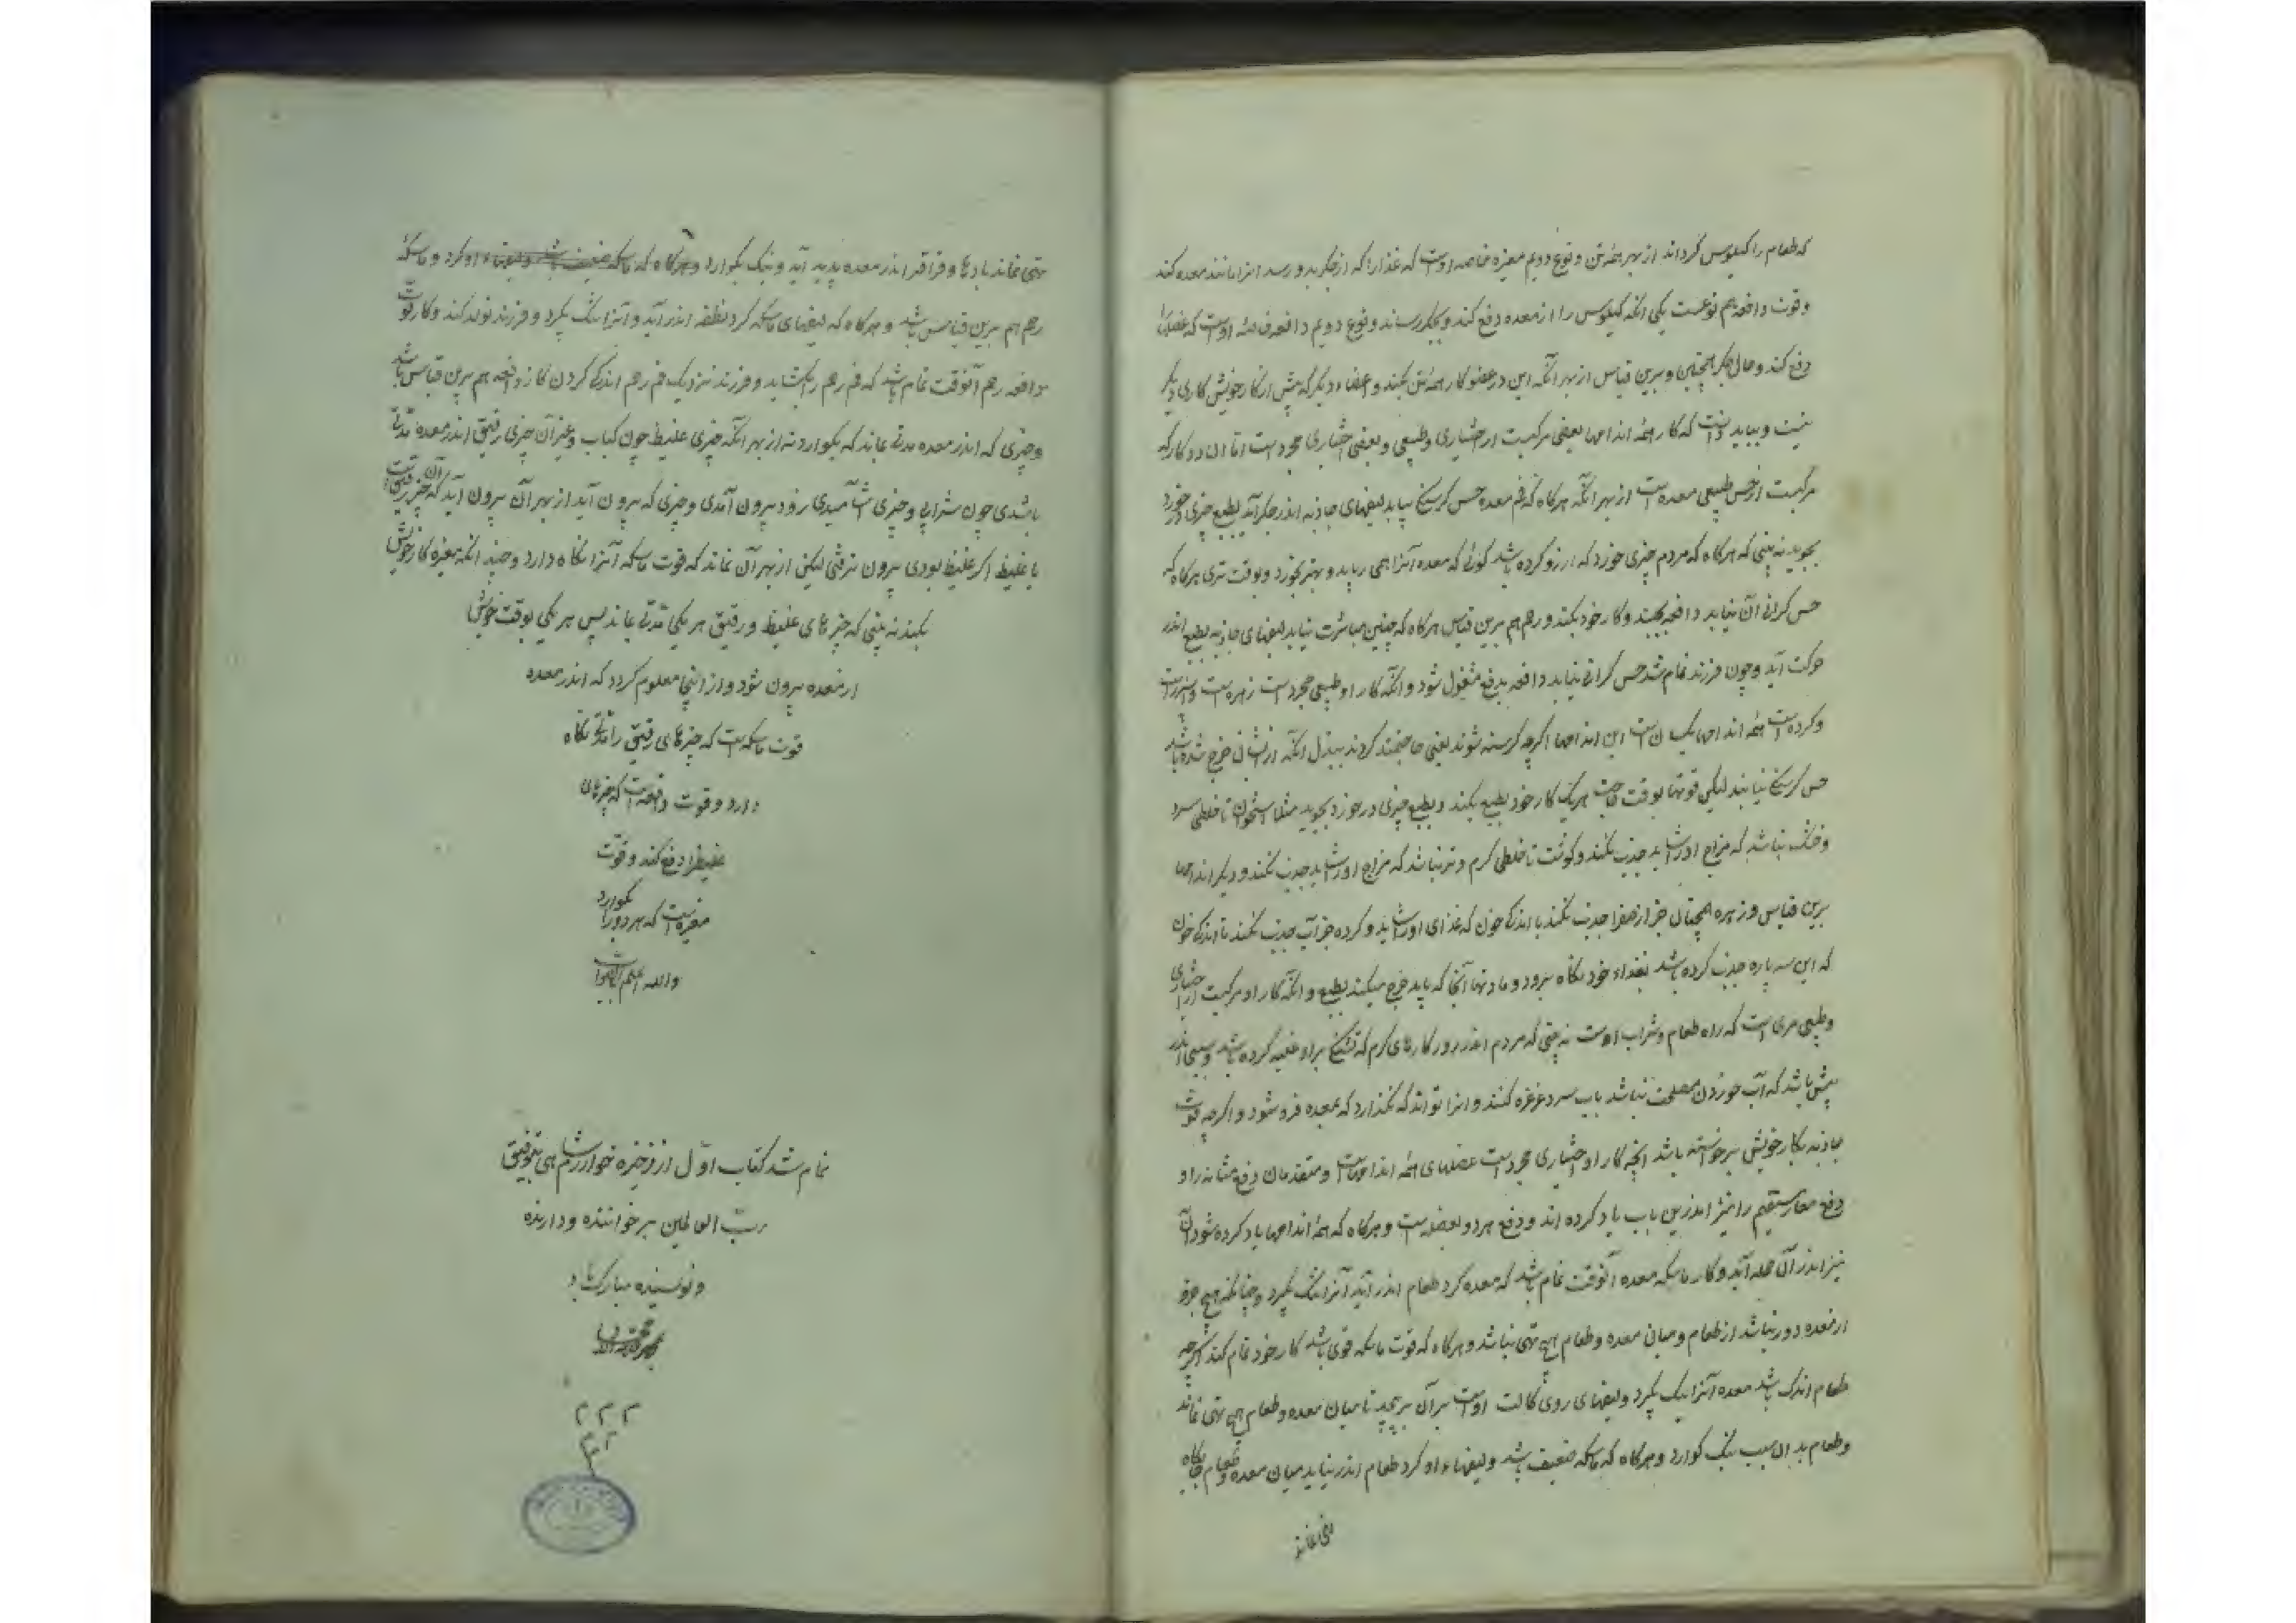 که طعام را کیلوس گرداند از بهر همه تن و نوع دویم مغیره خاصه اوست که غذا را که از جکر بدو رسد انرا مانند معده کند
وقوت دافعه هم نوعست یکی انکه کیلوس را از معده دفع کند و بجکر رساند و نوع دویم دافعه اوست که فضله را
دفع کند و حال جکر همچنین و برین قیاس از بهر آنکه این دو عضو کار همه تن بکنند و اعضاء دیکر که بیش از کار خویش کاری دیکر
نیست و بباید دانست که کار همه اندامها بعضی مرکبست از اختیاری و طبیعی و بعضی اختیاری مجردست اما ان دو کار که
مرکبست از حس طبیعی معده است از بهر آنکه هرکاه که فم معده حس کرسنکی بیابد لیفهای جاذبه اندر حرکت آید بطبع چیزی درخورد
بجوید نه بینی که هرکاه که مردم چیزی خورد که ارزو کرده باشد کوئی که معده آنرا همی رباید و بهتر بخورد و بوقت تری هرکاه که
حس کرانی آن بیابد دافعه بجنبد و کار خود بکند و رحم هم برین قیاس هرکاه که حس مباشرت بیابد لیفهای جاذبه بطبع اندر
حرکت آید و چون فرزند تمام شد حس کرانی بیابد دافعه بدفع مشغول شود و انکه کار او طبیعی مجردست زهره است و سپرزست
و کرده است همه اندامها یکسانست این اندامها اکرچه کرسنه شوند یعنی حاجتمند کردند ببدل انکه از ایشان خرج شده باشد
حس کرسنکی نیابند لیکن قوتها بوقت حاجت هریک کار خود بطبع بکند و بطبع چیزی درخورد بجوید مثلا استخوان تا خلطی سرد
و خشک نباشد که مزاج او را شاید جذب نکند و کوشت تا خلطی کرم و تر نباشد که مزاج او را شاید جذب نکند و دیکر اندامها
برین قیاس و زهره همچنان جز از صفرا جذب نکند با اندکی خون که غذای او را شاید و کرده جز آب جذب نکند تا اندکی خون
که این سه پاره جذب کرده باشد بغذاء خود نکاه برود و مادتها آنجا که باید خرج میکند بطبع و انکه کار او مرکبست از اختیاری
و طبیعی مری است که راه طعام و شراب اوست نه بینی که مردم اندر روزکارهای کرم که تشنکی بر او غلبه کرده باشد و سببی اندر
پیش باشد که آب خوردن مصلحت نباشد باب سرد غرغره کنند و انرا تواند که نکذارد که بمعده فرو شود و اکرچه قوت
جاذبه بکار خویش برخواسته باشد انچه کار او اختیاری مجردست عضلهای همه اندامهاست و متقدمان دفع مثانه را و
دفع معاء مستقیم را نیز اندرین باب یاد کرده اند و دفع هر دو بعضله است و هرکاه که همه اندامها یاد کرده شود آن
نیز اندر آن جمله آید و کار ماسکه معده آنوقت تمام باشد که معده کرد طعام اندر آید آنرا تنک بکیرد و چنانکه هیچ جزو
از معده دور نباشد از طعام و میان معده و طعام هیچ تهی نباشد و هرکاه که قوت ماسکه قوی باشد کار خود تمام کند اکرچه
طعام اندک باشد معده آنرا نیک بکیرد و لیفهای روی کالت اوست بر آن بر پیچد تا میان معده و طعام هیچ تهی نماند
و طعام بدان سبب نیک کوارد و هرکاه که ماسکه ضعیف باشد و لیفهاء او کرد طعام اندر نیاید میان معده و طعام جایکاه
تهی نماند
تهی نماند بادها و قراقر اندر معده پدید آید و نیک بکوارد و هرکاه که ماسکه ضعیف باشد و لیفهاء او کرد و ماسکهٔ
رحم هم برین قیاس باشد و هرکاه که لیفهای ماسکه کرد نطفه اندر آید و آنرا تنک بکیرد و فرزند تولد کند و کار قوت
دافعه رحم آنوقت تمام باشد که فم رحم بکشاید و فرزند نزدیک فم رحم اندکی کردن کار دافعه هم برین قیاس باشد
و چیزی که اندر معده مدتی بماند که بکوارد نه از بهر انکه چیزی غلیظ چون کباب و غیر آن چیزی رقیق اندر معده مدتی
باشدی چون شرابی و چیزی آشامیدی زود بیرون آمدی و چیزی که بیرون آید از بهر آن بیرون آید که آن چیز رقیق است
یا غلیظ اکر غلیظ بودی بیرون نرفتی لیکن از بهر آن نماند که قوت ماسکه آنرا نکاه دارد و چند انکه مغیره کار خویش
بکند نه بینی که چیزهای غلیظ و رقیق هر یکی مدتی بماند پس هر یکی بوقت خویش
از معده بیرون شود و از اینجا معلوم کردد که اندر معده
قوت ماسکه است که چیزهای رقیق را مدتی نکاه
دارد و قوت دافعه است که چیزهای
غلیظ را دفع کند و قوت
مغیره است که هر دو را بکوارد
والله اعلم بالصواب
تمام شد کتاب اوّل از ذخیره خوارزمشاهی بتوفیق
ربّ العالمین بر خواننده و دارنده
و نویسنده مبارک باد
۲۲۲